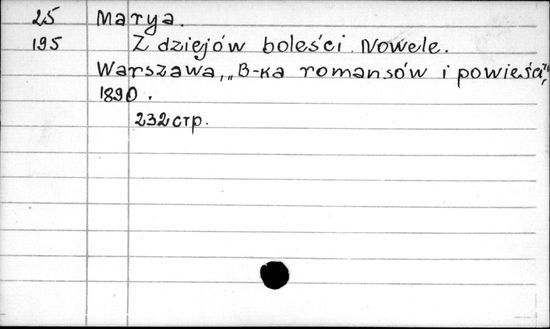 25 Marya.
195 Z dziejów boleści. Nowele.
Warszawa, „B-ка romansów i powieści",
1890.
232 стр.